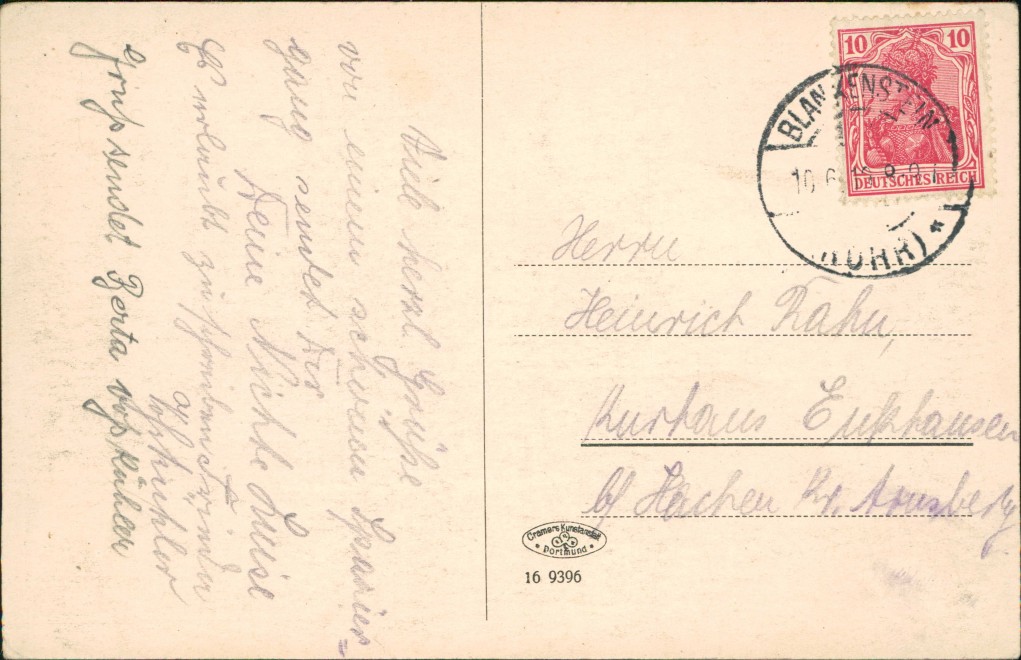 Viele herzl. Grüße
von einem schönen Spazier-
gang sendet Dir
Deine Nichte Luise
Gruß sendet Berta
10 10
DEUTSCHES REICH
BLANKENSTEIN
(RUHR) *
10.6. 8-9
Herrn
Heinrich Rahn,
Kurhaus
b/ Hachen Kr. Arnsberg
Cramers Kunstanstalt
Dortmund
16 9396